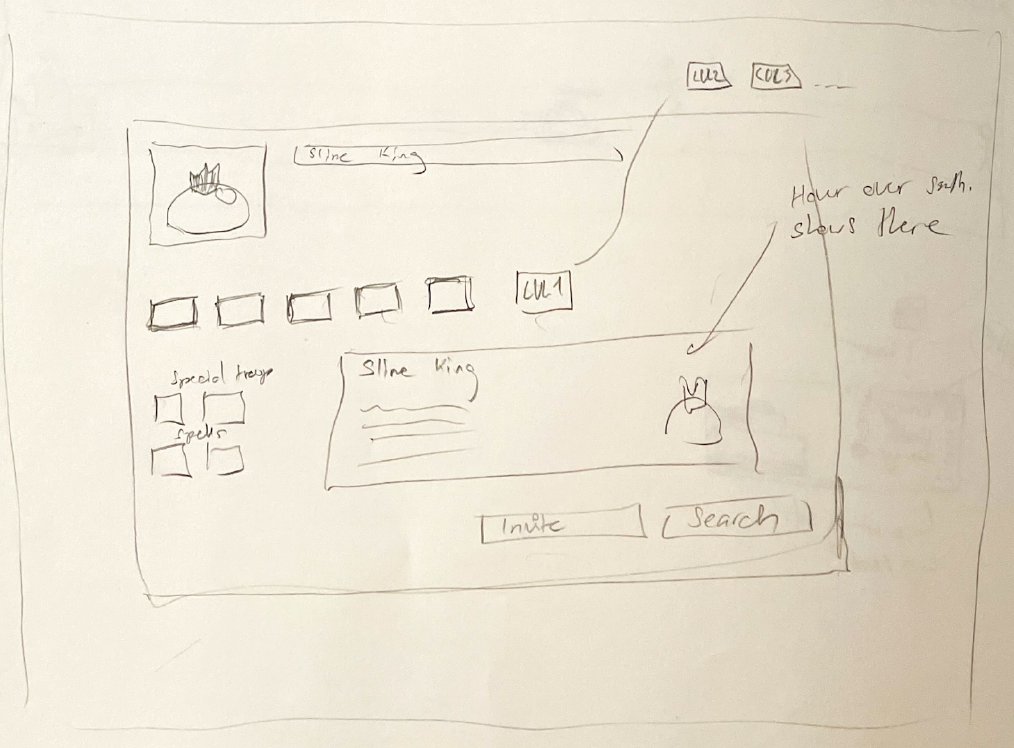 LVL2 LVL3 ....
Slime King
Hover over smth.
shows there
LVL1
Special troops
Slime King
Spells
Invite
Search